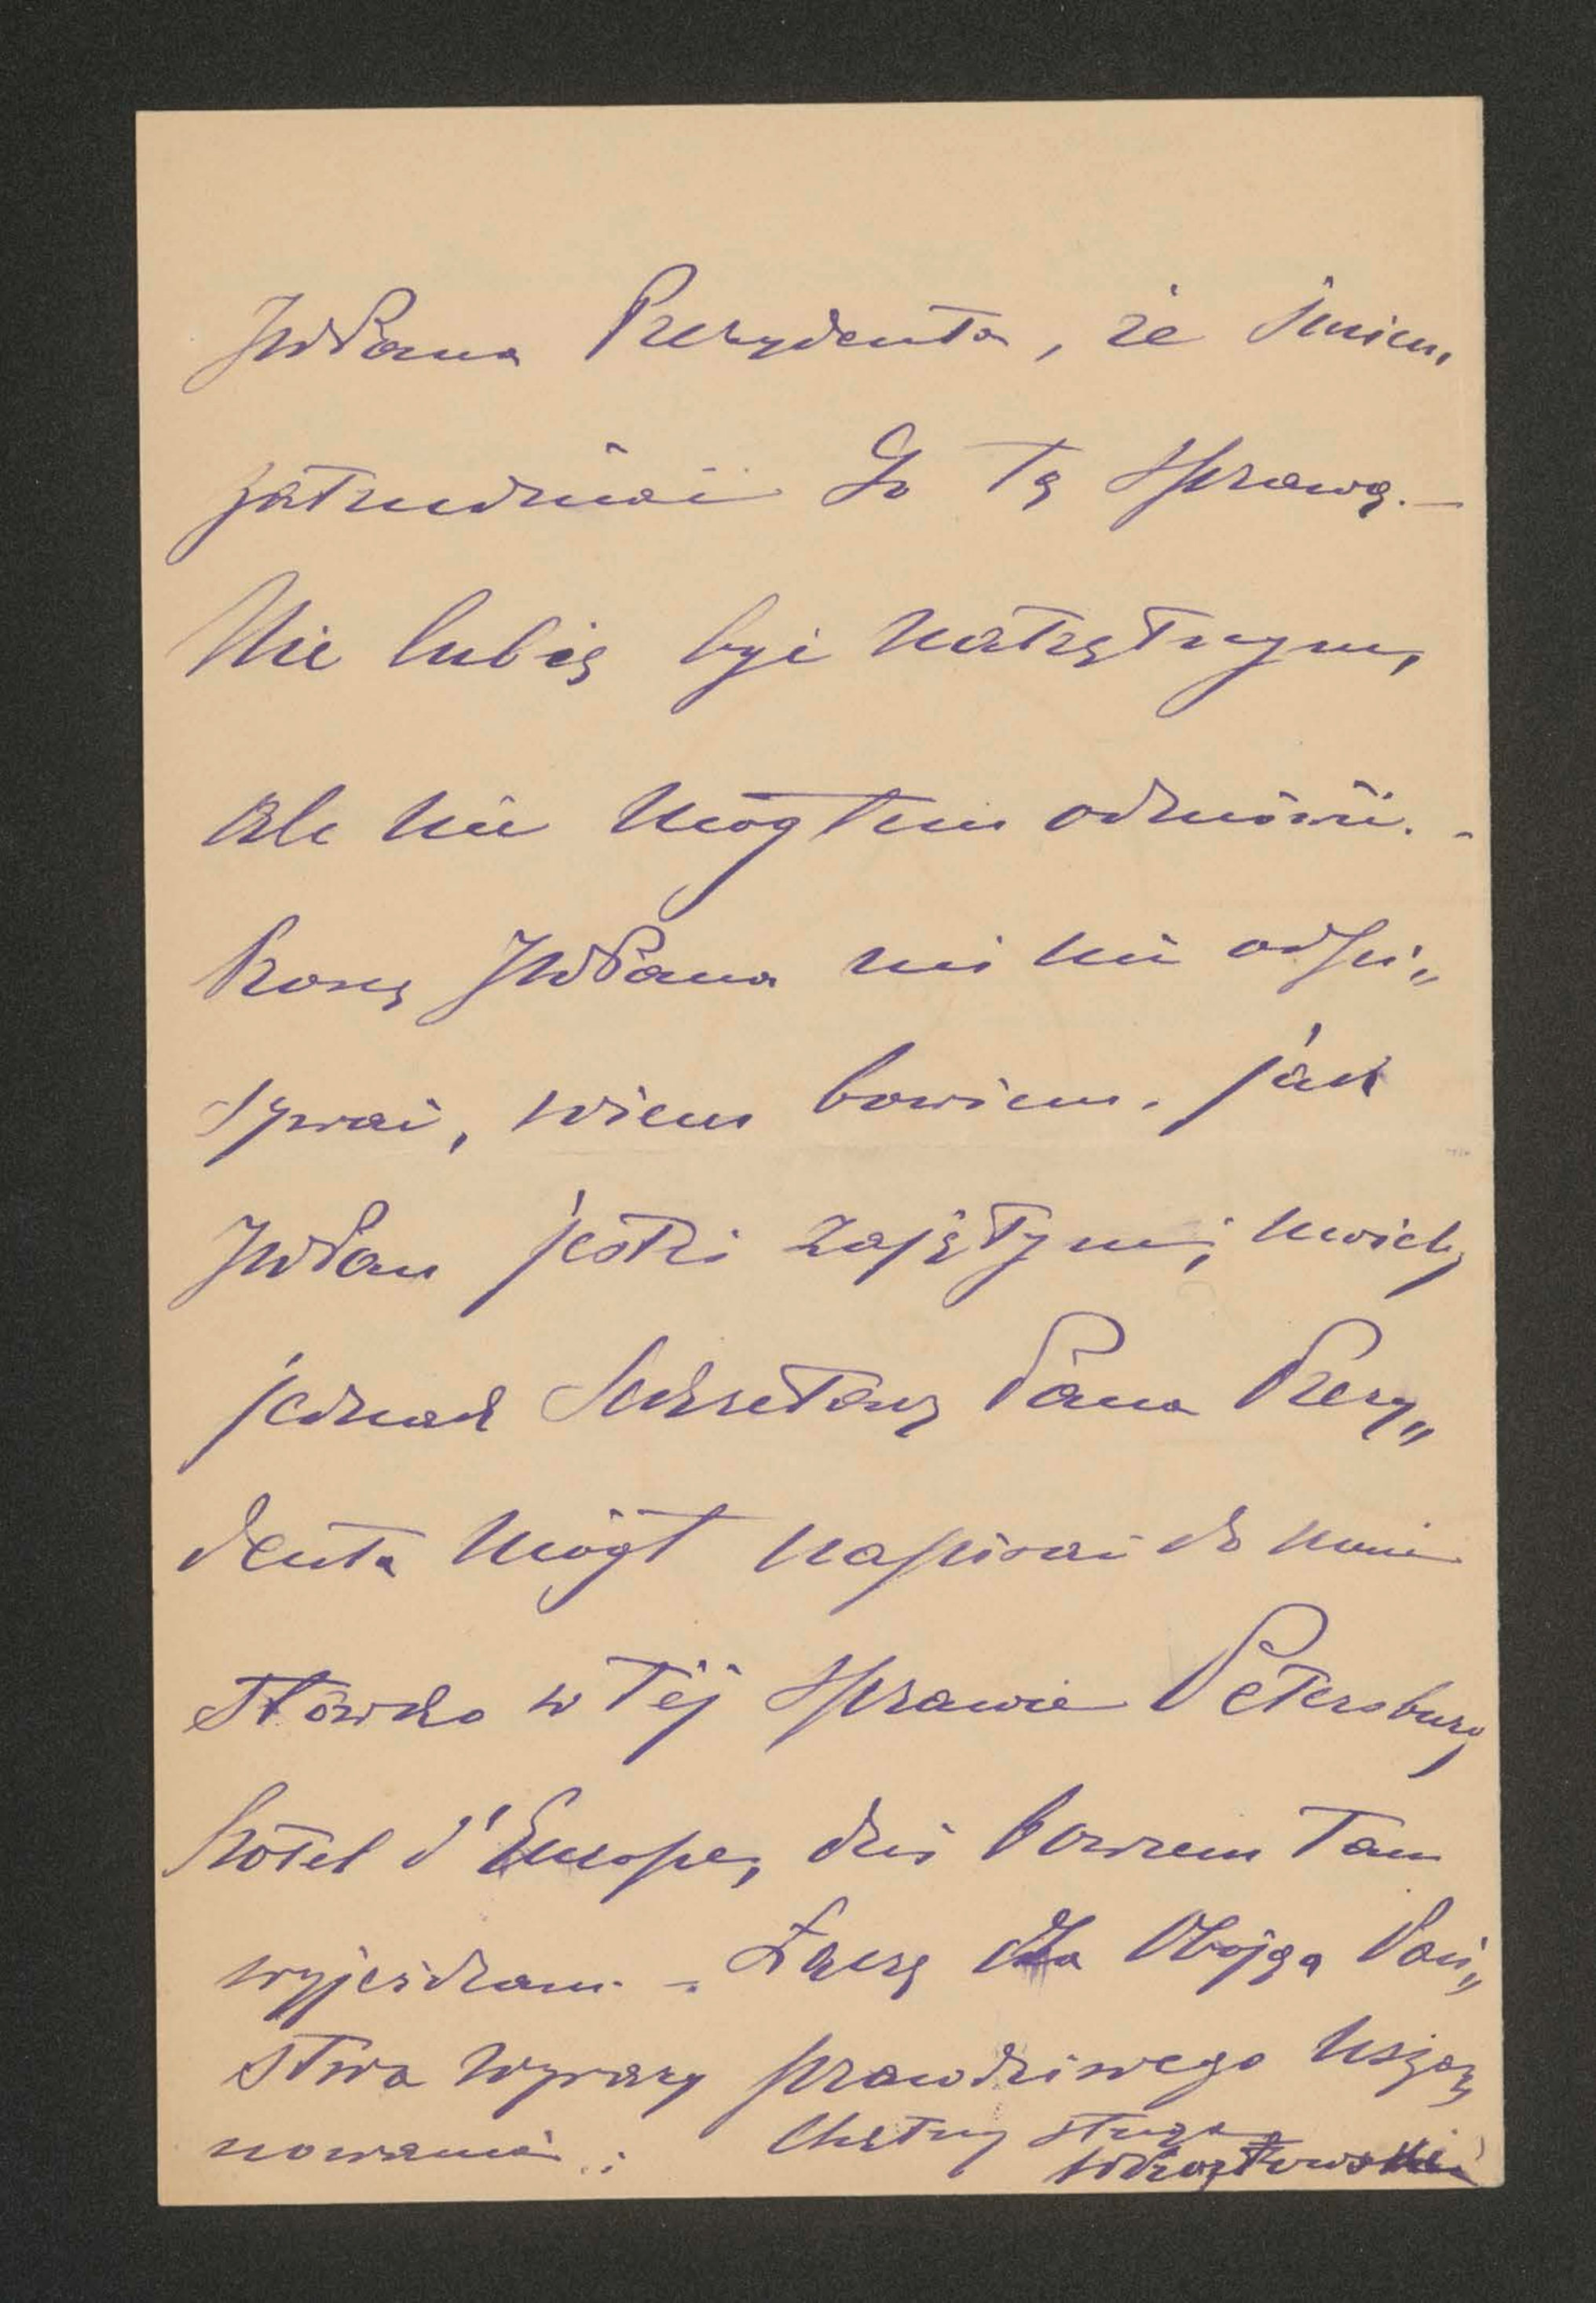 JWPana Prezydenta, że śmiem,
zatrudniać Go tą sprawą. —
Nie lubię być natrętnym,
ale nie mogłem odmówić. -
Proszę JWPana mi nie odpi„
sywać, wiem bowiem, jak
JWPan jesteś zajętym;
jednak Sekretarz Pana Prezy„
denta mógł napisać do mnie
słówko w tej sprawie Petersburg
hôtel d'Europe, dziś bowiem tam
wyjeżdżam. - Łączę dla Obojga Pań„
stwa wyrazy prawdziwego usza„
nowania. : Chętny sługa